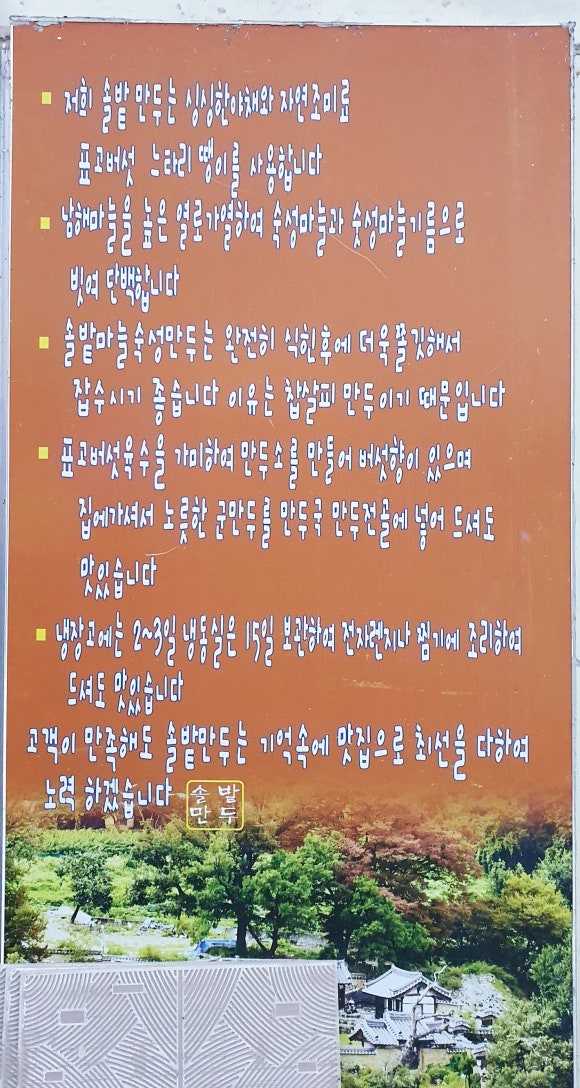 저희 솔밭 만두는 싱싱한야채와 자연조미료
표고버섯 느타리 땡이를 사용합니다
남해마늘을 높은 열로가열하여 숙성마늘과 숫성마늘기름으로
빗여 단백합니다
솔밭마늘숙성만두는 완전히 식힌후에 더욱쫄깃해서
잡수시기 좋습니다 이유는 찹살피 만두이기 때문입니다
표고버섯육수을 가미하여 만두소를 만들어 버섯향이 있으며
집에가셔서 노릇한 군만두를 만두국 만두전골에 넣어 드셔도
맛있습니다
냉장고에는 2~3일 냉동실은 15일 보관하여 전자렌지나 찜기에 조리하여
드셔도 맛있습니다
고객이 만족해도 솔밭만두는 기억속에 맛집으로 최선을 다하여
노력 하겠습니다
솔밭
만두